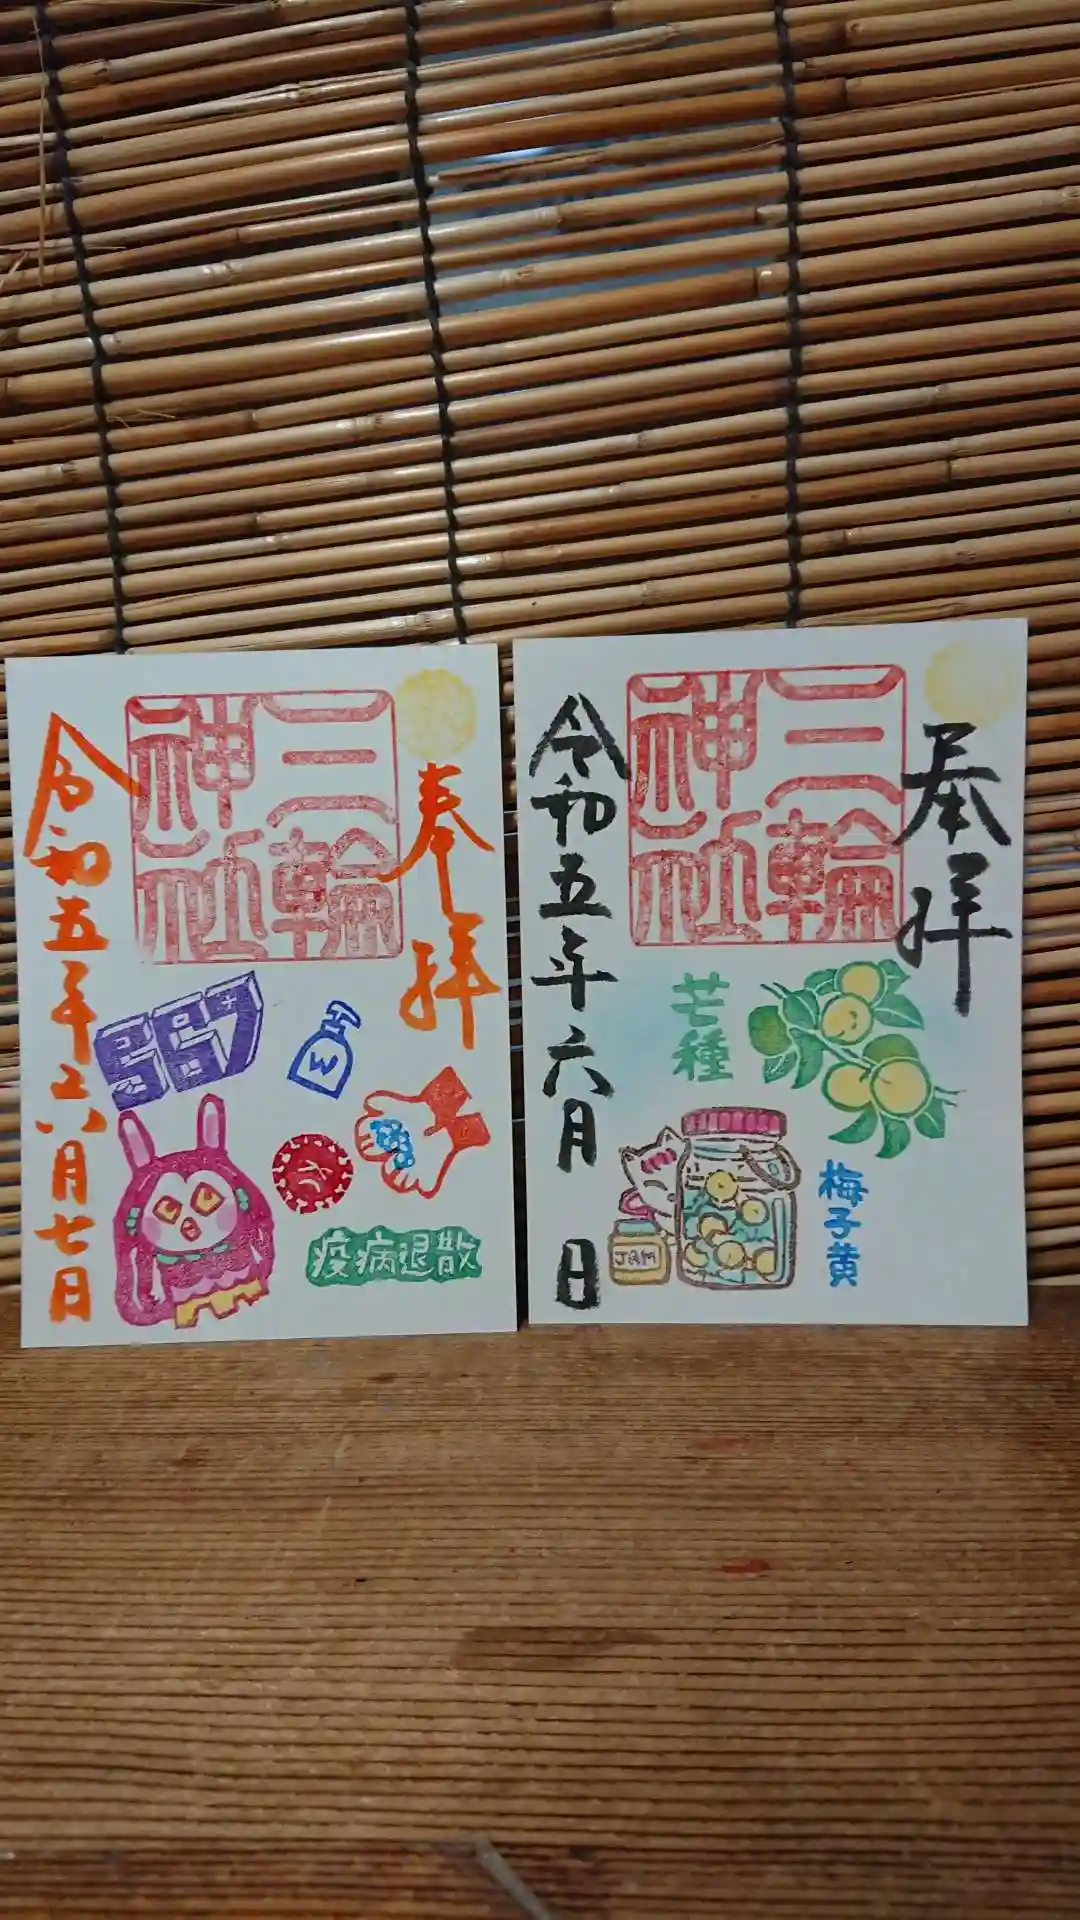 奉拝
三輪
神社
567
疫病退散
令和五年六月七日
奉拝
三輪
神社
芒種
梅子黄
JAM
令和五年六月 日